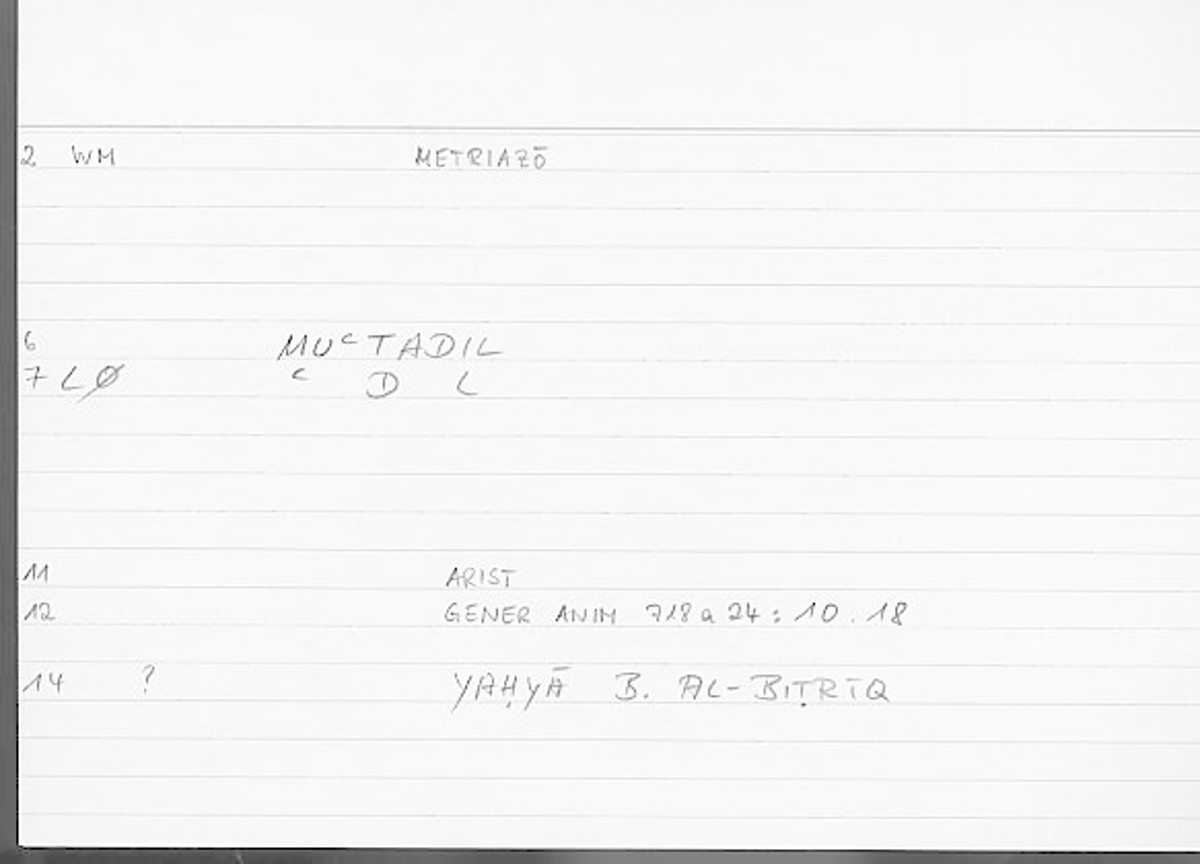 2 WM METRIAZŌ
6 MUᶜTADIL
7 LØ ᶜ D L
11 ARIST
12 GENER ANIM 718 a 24 : 10 . 18
14 ? YAḤYĀ B. AL-BIṬRĪQ